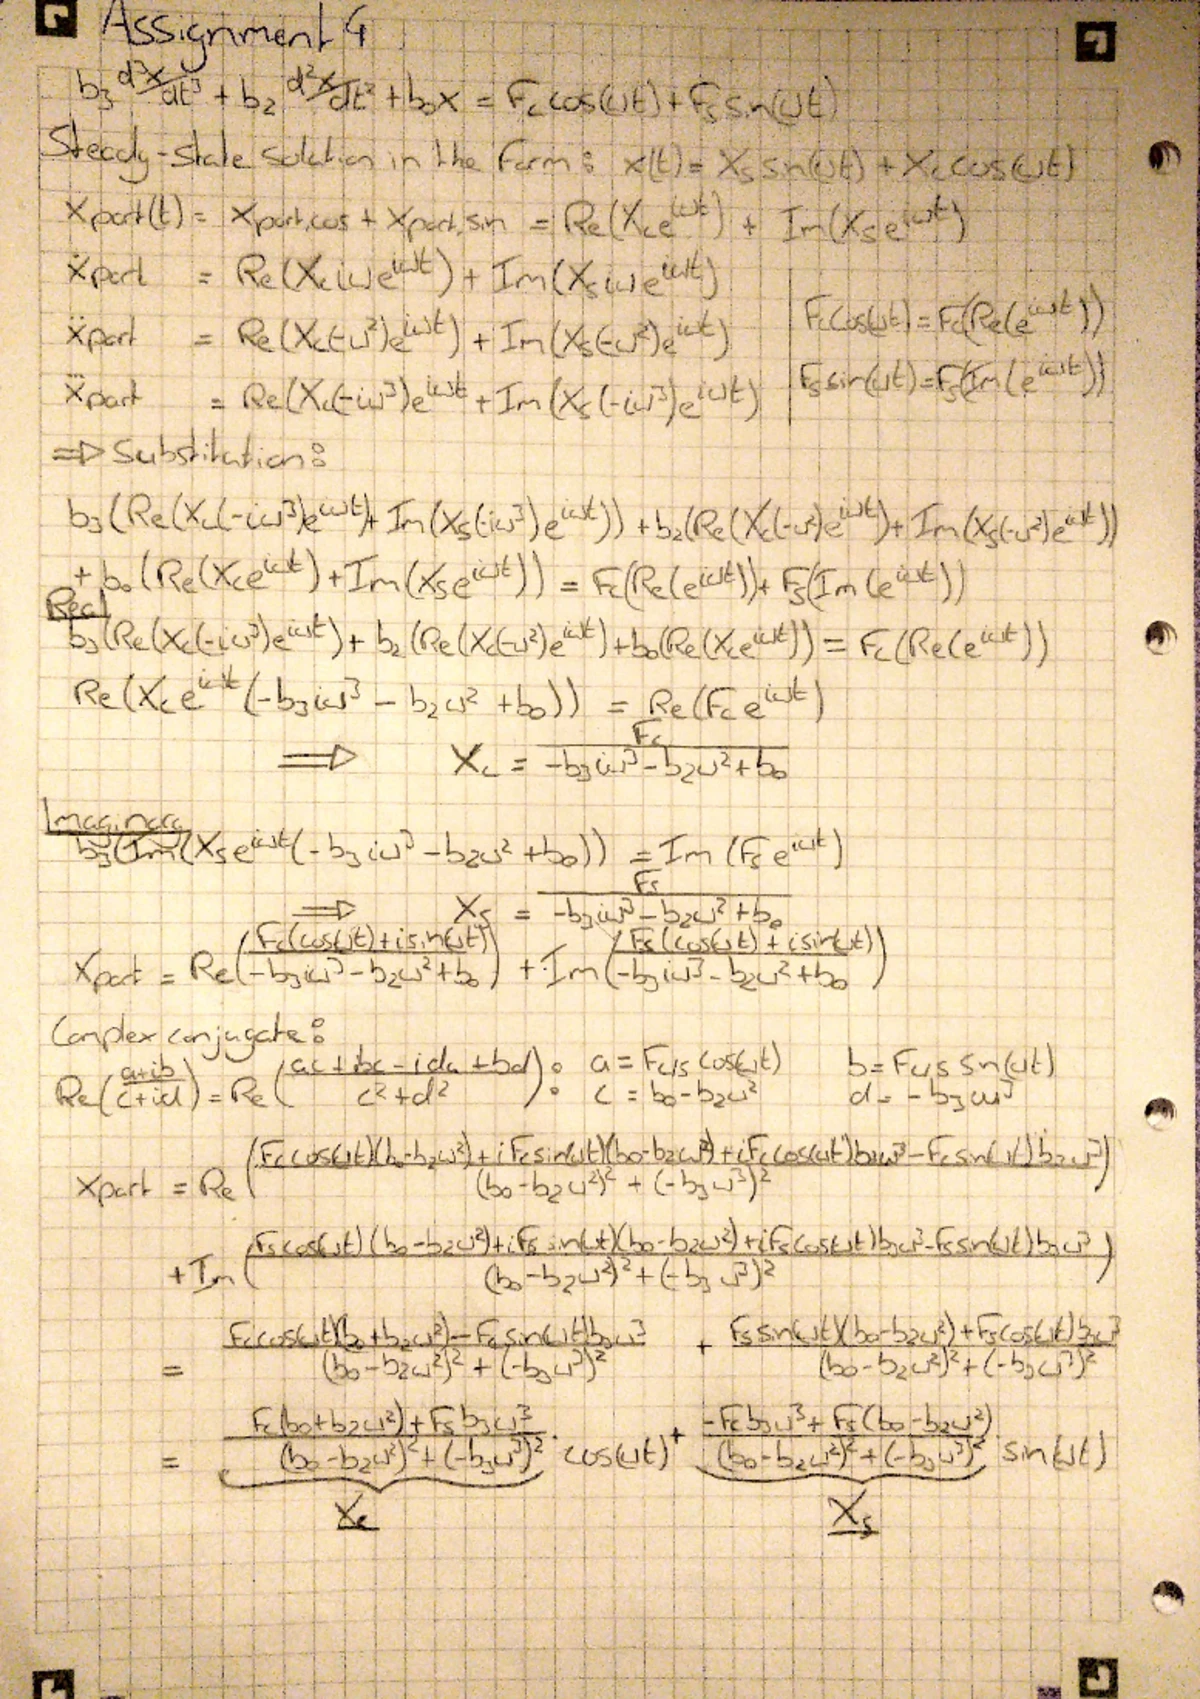 Assignment 4
b₃ d³x/dt³ + b₂ d²x/dt² + b₀x = F_c cos(ωt) + F_s sin(ωt)
Steady-State solution in the form: x(t) = X_s sin(ωt) + X_c cos(ωt)
x_part(t) = x_part,cos + x_part,sin = Re(X_c e^{iωt}) + Im(X_s e^{iωt})
ẋ_part = Re(X_c iω e^{iωt}) + Im(X_s iω e^{iωt})
F_c cos(ωt) = F_c(Re(e^{iωt}))
ẍ_part = Re(X_c(-ω²)e^{iωt}) + Im(X_s(-ω²)e^{iωt})
F_s sin(ωt) = F_s(Im(e^{iωt}))
x⃛_part = Re(X_c(-iω³)e^{iωt} + Im(X_s(-iω³)e^{iωt})
⇒ Substitution:
b₃(Re(X_c(-iω³)e^{iωt}) + Im(X_s(-iω³)e^{iωt})) + b₂(Re(X_c(-ω²)e^{iωt}) + Im(X_s(-ω²)e^{iωt}))
+ b₀(Re(X_c e^{iωt}) + Im(X_s e^{iωt})) = F_c(Re(e^{iωt})) + F_s(Im(e^{iωt}))
Real
b₃(Re(X_c(-iω³)e^{iωt}) + b₂(Re(X_c(-ω²)e^{iωt}) + b₀(Re(X_c e^{iωt})) = F_c(Re(e^{iωt}))
Re(X_c e^{iωt}(-b₃iω³ - b₂ω² + b₀)) = Re(F_c e^{iωt})
⇒ X_c = F_c / (-b₃iω³ - b₂ω² + b₀)
Imaginary
Im(X_s e^{iωt}(-b₃iω³ - b₂ω² + b₀)) = Im(F_s e^{iωt})
⇒ X_s = F_s / (-b₃iω³ - b₂ω² + b₀)
x_part = Re(F_c(cos(ωt) + i sin(ωt)) / (-b₃iω³ - b₂ω² + b₀)) + Im(F_s(cos(ωt) + i sin(ωt)) / (-b₃iω³ - b₂ω² + b₀))
Complex conjugate:
Re((a+ib)/(c+id)) = Re((ac + ibc - ida + bd)/(c² + d²)) : a = F_c/s cos(ωt) b = F_c/s sin(ωt)
c = b₀ - b₂ω² d = -b₃ω³
x_part = Re((F_c cos(ωt)(b₀-b₂ω²) + iF_c sin(ωt)(b₀-b₂ω²) + iF_c cos(ωt)b₃ω³ - F_c sin(ωt)b₃ω³) / ((b₀-b₂ω²)² + (-b₃ω³)²))
+ Im((F_s cos(ωt)(b₀-b₂ω²) + iF_s sin(ωt)(b₀-b₂ω²) + iF_s cos(ωt)b₃ω³ - F_s sin(ωt)b₃ω³) / ((b₀-b₂ω²)² + (-b₃ω³)²))
= (F_c cos(ωt)(b₀+b₂ω²) - F_c sin(ωt)b₃ω³) / ((b₀-b₂ω²)² + (-b₃ω³)²) + (F_s sin(ωt)(b₀-b₂ω²) + F_s cos(ωt)b₃ω³) / ((b₀-b₂ω²)² + (-b₃ω³)²)
= (F_c(b₀+b₂ω²) + F_s b₃ω³) / ((b₀-b₂ω²)² + (-b₃ω³)²) · cos(ωt) + (-F_c b₃ω³ + F_s(b₀-b₂ω²)) / ((b₀-b₂ω²)² + (-b₃ω³)²) · sin(ωt)
X_c X_s